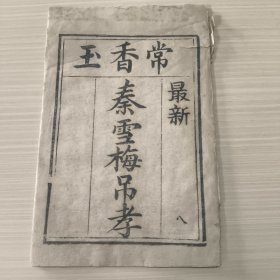 常香玉
最新
秦雪梅吊孝
八